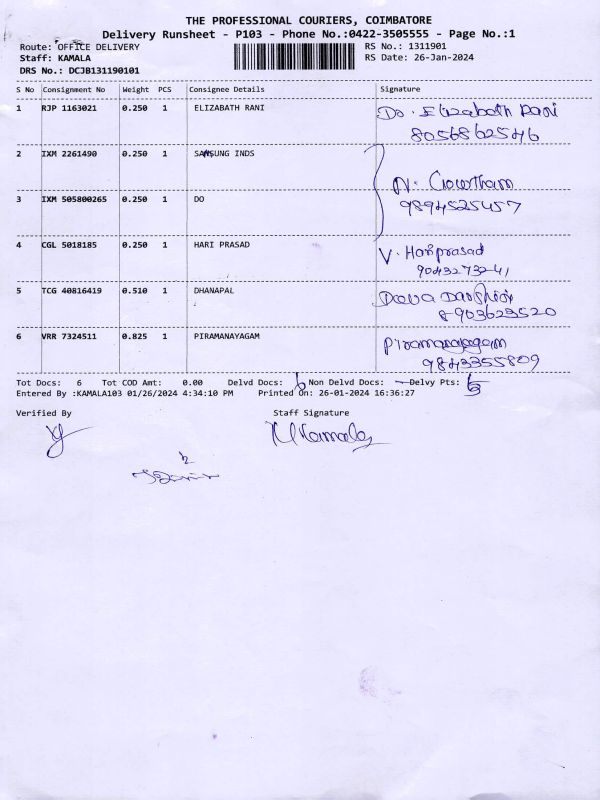 THE PROFESSIONAL COURIERS, COIMBATORE
Delivery Runsheet - P103 - Phone No.:0422-3505555 - Page No.:1
Route: OFFICE DELIVERY RS No.: 1311901
Staff: KAMALA RS Date: 26-Jan-2024
DRS No.: DCJB131190101
S No Consignment No Weight PCS Consignee Details Signature
1 RJP 1163021 0.250 1 ELIZABATH RANI Do. Elizabath Rani
8056862546
2 IXM 2261490 0.250 1 SAMSUNG INDS
N. Gowtham
9894525457
3 IXM 505800265 0.250 1 DO
4 CGL 5018185 0.250 1 HARI PRASAD V. Hariprasad
9043273241
5 TCG 40816419 0.510 1 DHANAPAL Deeva Darshini
8903623520
6 VRR 7324511 0.825 1 PIRAMANAYAGAM Piramanayagam
9843355809
Tot Docs: 6 Tot COD Amt: 0.00 Delvd Docs: 6 Non Delvd Docs: — Delvy Pts: 5
Entered By :KAMALA103 01/26/2024 4:34:10 PM Printed On: 26-01-2024 16:36:27
Verified By Staff Signature